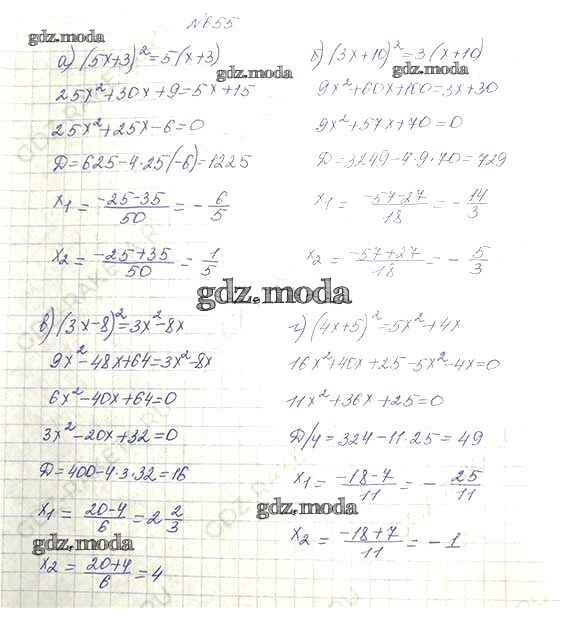 №655
gdz.moda
а) (5x+3)²=5(x+3)
25x²+30x+9=5x+15
25x²+25x-6=0
Д=625-4·25(-6)=1225
x₁ = (-25-35)/50 = -6/5
x₂ = (-25+35)/50 = 1/5
б) (3x+10)²=3(x+10)
gdz.moda
9x²+60x+100=3x+30
9x²+57x+70=0
Д=3249-4·9·70=729
x₁ = (-57-27)/18 = -14/3
x₂ = (-57+27)/18 = -5/3
gdz.moda
в) (3x-8)²=3x²-8x
9x²-48x+64=3x²-8x
6x²-40x+64=0
3x²-20x+32=0
Д=400-4·3·32=16
x₁ = (20-4)/6 = 2 2/3
gdz.moda
x₂ = (20+4)/6 = 4
г) (4x+5)²=5x²+4x
16x²+40x+25-5x²-4x=0
11x²+36x+25=0
Д/4=324-11·25=49
x₁ = (-18-7)/11 = -25/11
gdz.moda
x₂ = (-18+7)/11 = -1